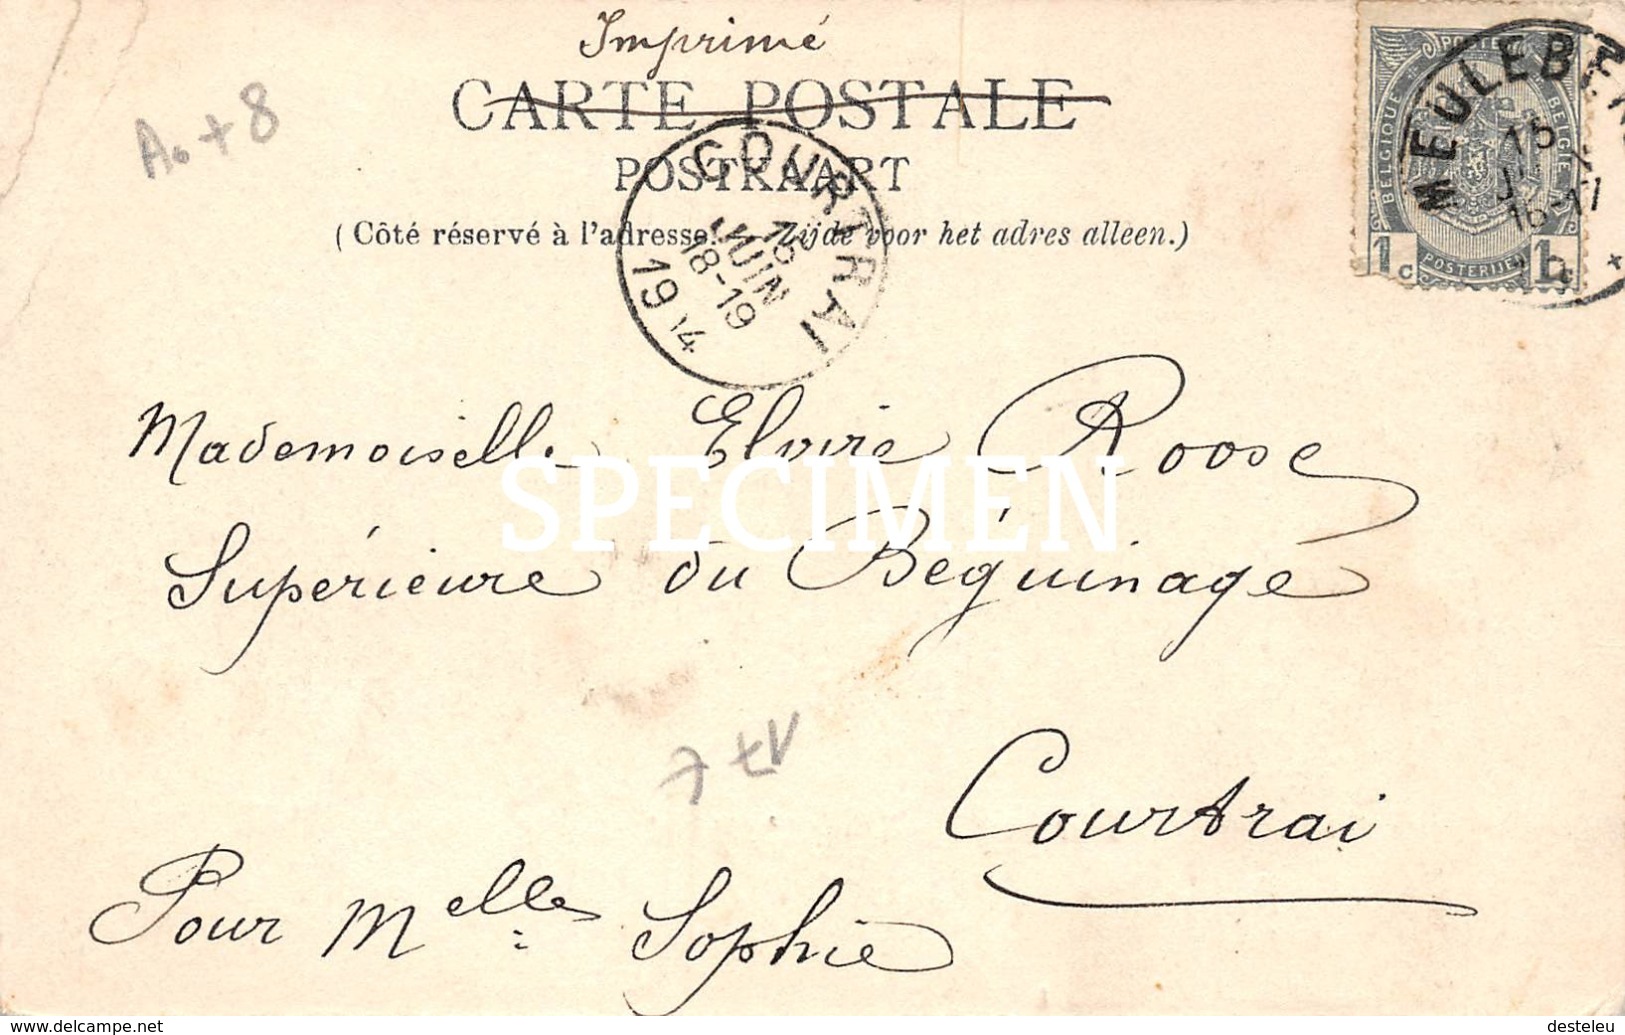 Imprimé
CARTE POSTALE
POSTKAART
(Côté réservé à l'adresse. — Zijde voor het adres alleen.)
A. + 8
COURTRAI
15
JUIN
18-19
1914
POSTES
BELGIQUE
BELGIË
POSTERIJEN
1c
1c
MEULEBE
15
16-17
Mademoiselle Elvire Roose
SPECIMEN
Supérieure du Béguinage
Courtrai
Pour Melle Sophie
www.delcampe.net
desteleu